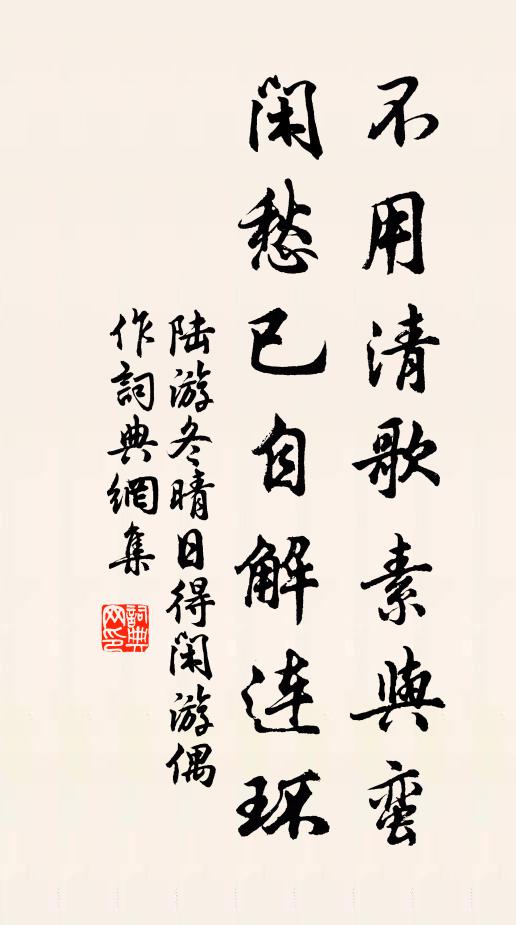 不用清歌素與蠻
閑愁已自解連环
陆游冬晴日得閑游偶
作詞典網集
詞典网印